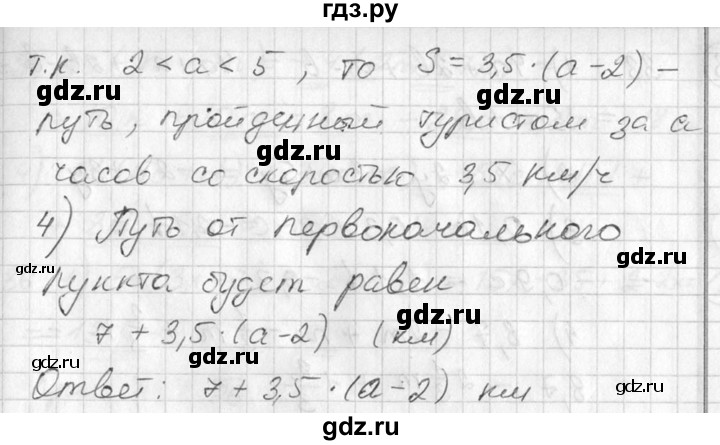 гдз.ру
т.к. 2 < a < 5 , то S = 3,5 · (a - 2) –
путь, пройденный туристом за a
gdz.ru
gdz.ru
часов со скоростью 3,5 км/ч
gdz.ru
4) Путь от первоначального
gdz.ru
gdz.ru
пункта будет равен
gdz.ru
7 + 3,5 · (a - 2) (км)
gdz.ru
gdz.ru
gdz.ru
Ответ: 7 + 3,5 · (a - 2) км
gdz.ru
gdz.ru